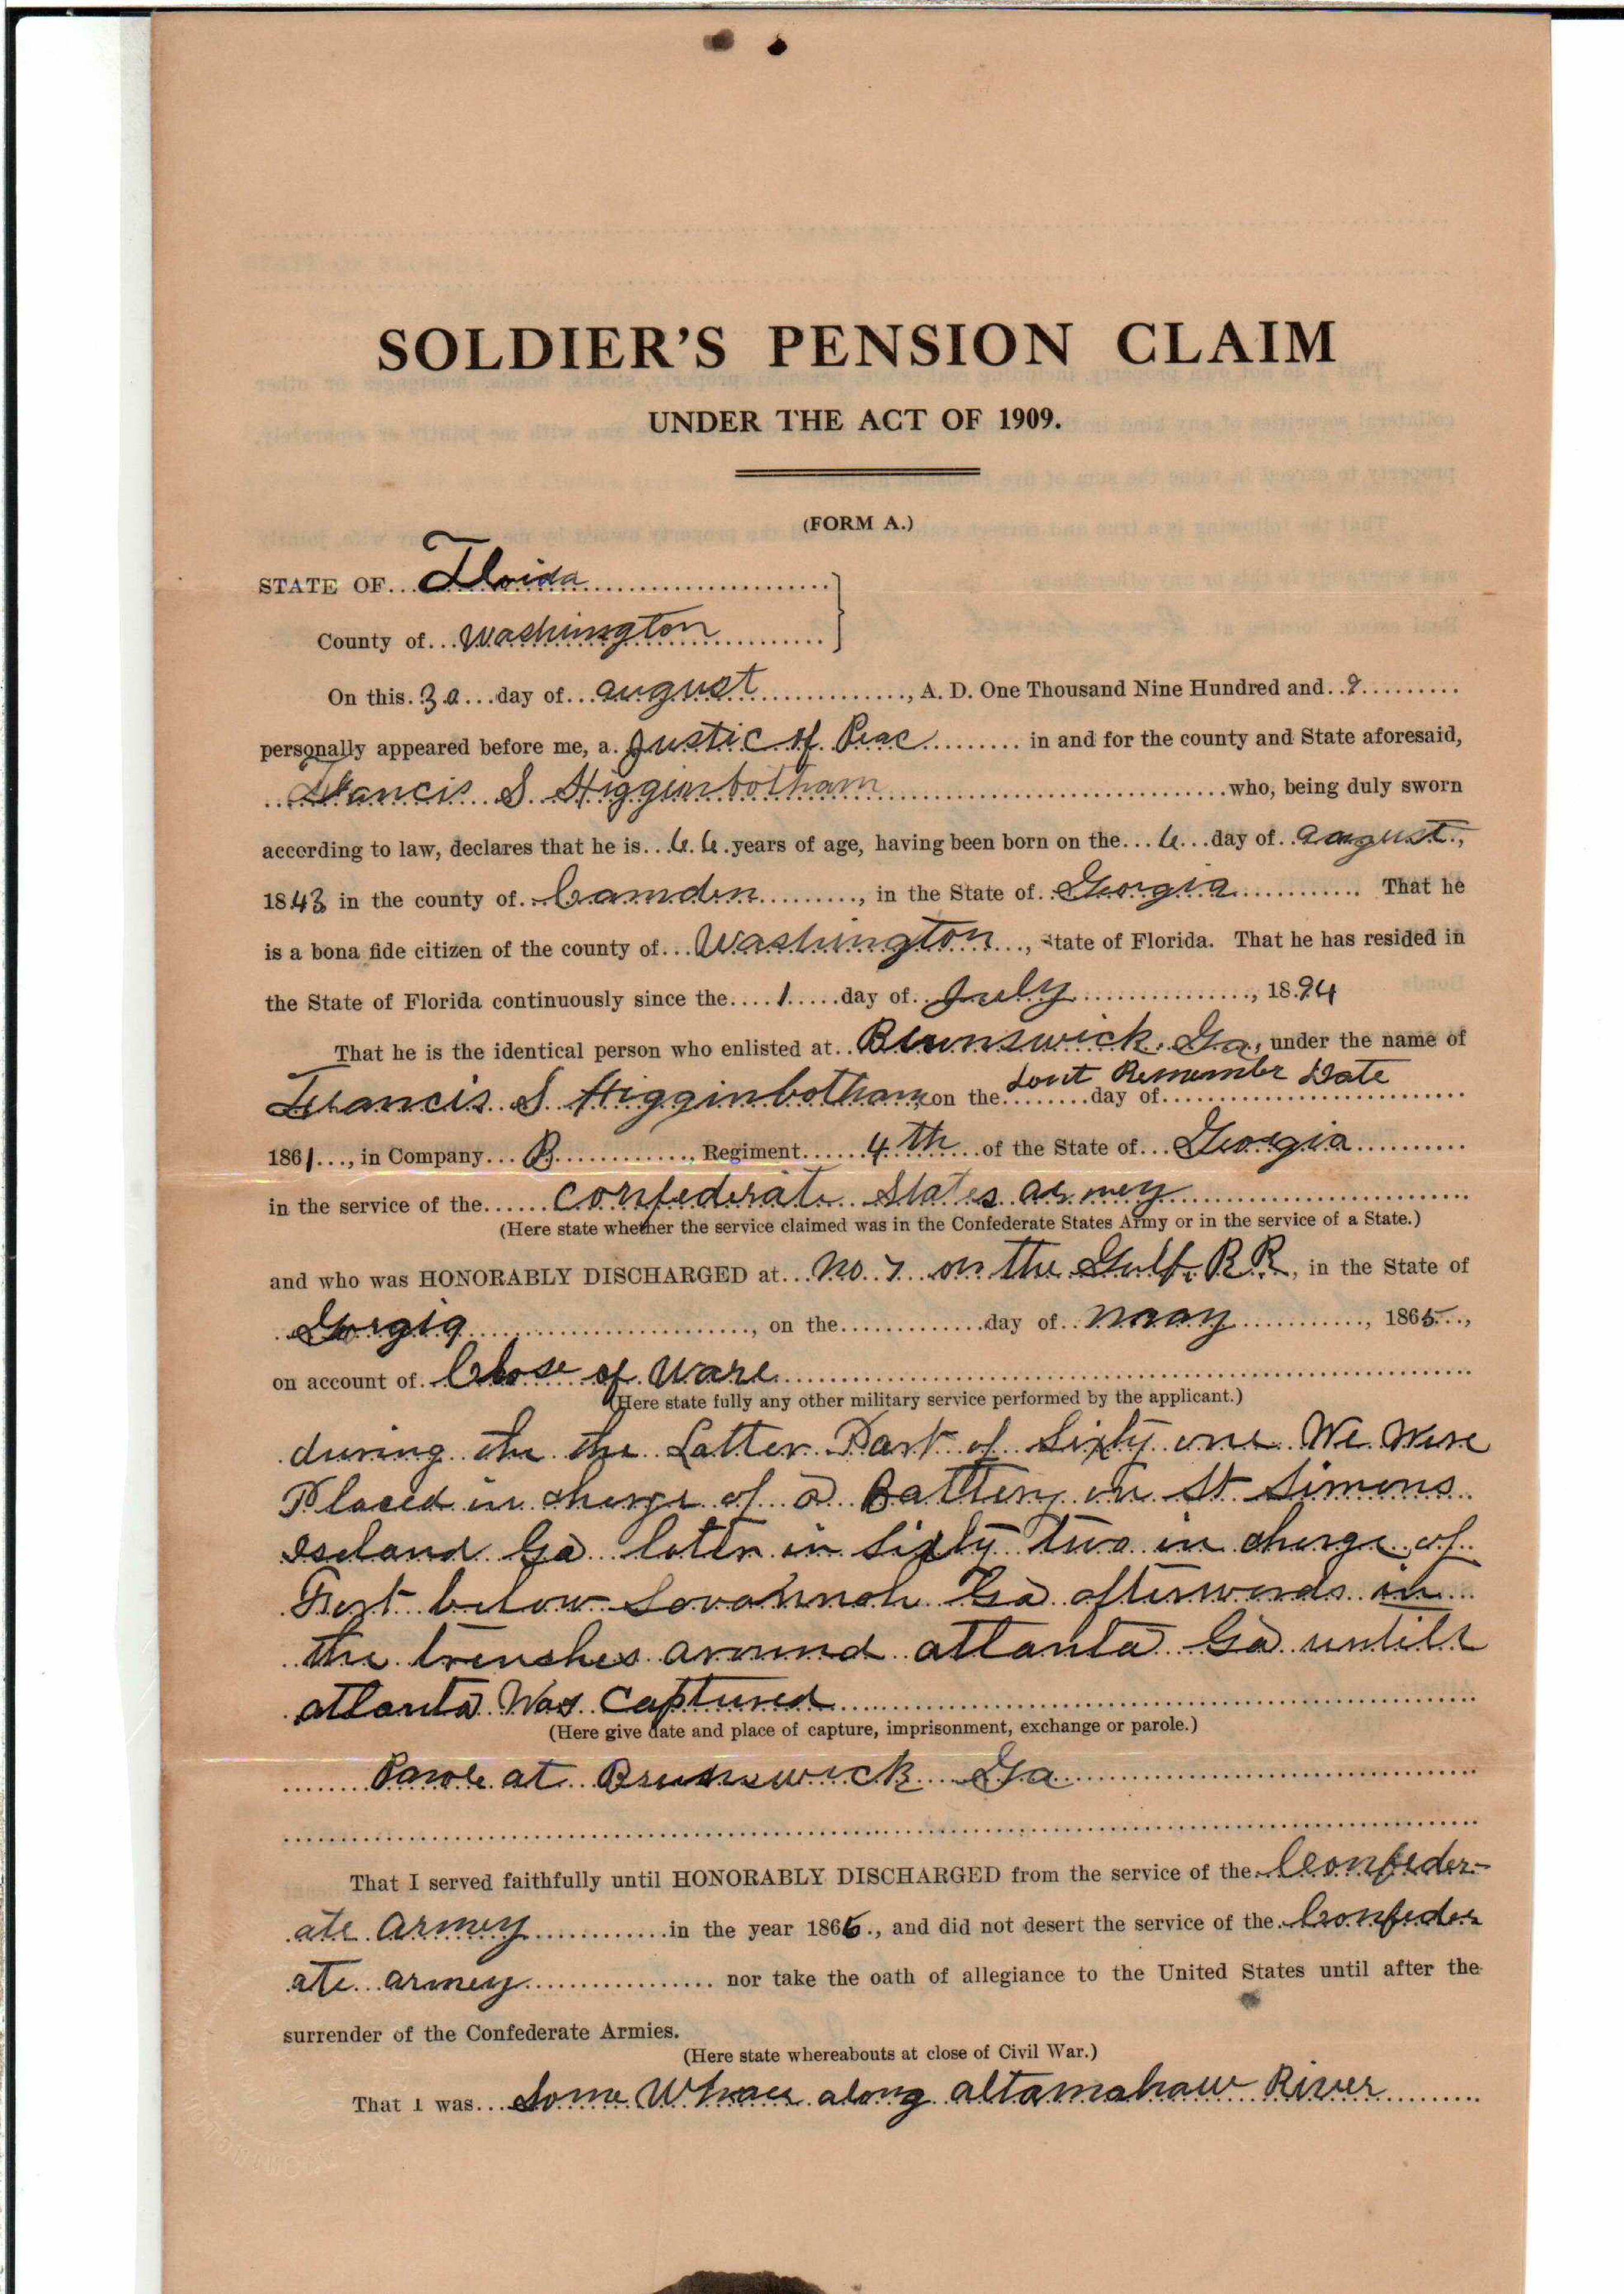 SOLDIER'S PENSION CLAIM
UNDER THE ACT OF 1909.
(FORM A.)
STATE OF Floida
County of Washington
On this 30 day of august, A. D. One Thousand Nine Hundred and 9
personally appeared before me, a Justic of Peac in and for the county and State aforesaid,
Francis S Higginbotham who, being duly sworn
according to law, declares that he is 66 years of age, having been born on the 6 day of august,
1843 in the county of Camden, in the State of Georgia. That he
is a bona fide citizen of the county of Washington, State of Florida. That he has resided in
the State of Florida continuously since the 1 day of July, 1894
That he is the identical person who enlisted at Brunswick Ga, under the name of
Francis S Higginbotham, on the dont Remember Date day of
1861, in Company B, Regiment 4th of the State of Georgia
in the service of the confederate States armey
(Here state whether the service claimed was in the Confederate States Army or in the service of a State.)
and who was HONORABLY DISCHARGED at No. 7 on the Gulf. R R, in the State of
Gorgia, on the day of may, 1865,
on account of Close of Ware
(Here state fully any other military service performed by the applicant.)
during the the Latter Part of Sixty one We Were
Placed in charge of a Battery on St Simons
Iseland Ga later in Sixty two in charge of
Fort below Savahnah Ga afterwards in
the trenches around atlanta Ga untill
atlanta Was Captured
(Here give date and place of capture, imprisonment, exchange or parole.)
Parole at Brunswick Ga
That I served faithfully until HONORABLY DISCHARGED from the service of the Confeder-
ate Armey in the year 1865, and did not desert the service of the Confeder
ate armey nor take the oath of allegiance to the United States until after the
surrender of the Confederate Armies.
(Here state whereabouts at close of Civil War.)
That I was Some along altamahaw River